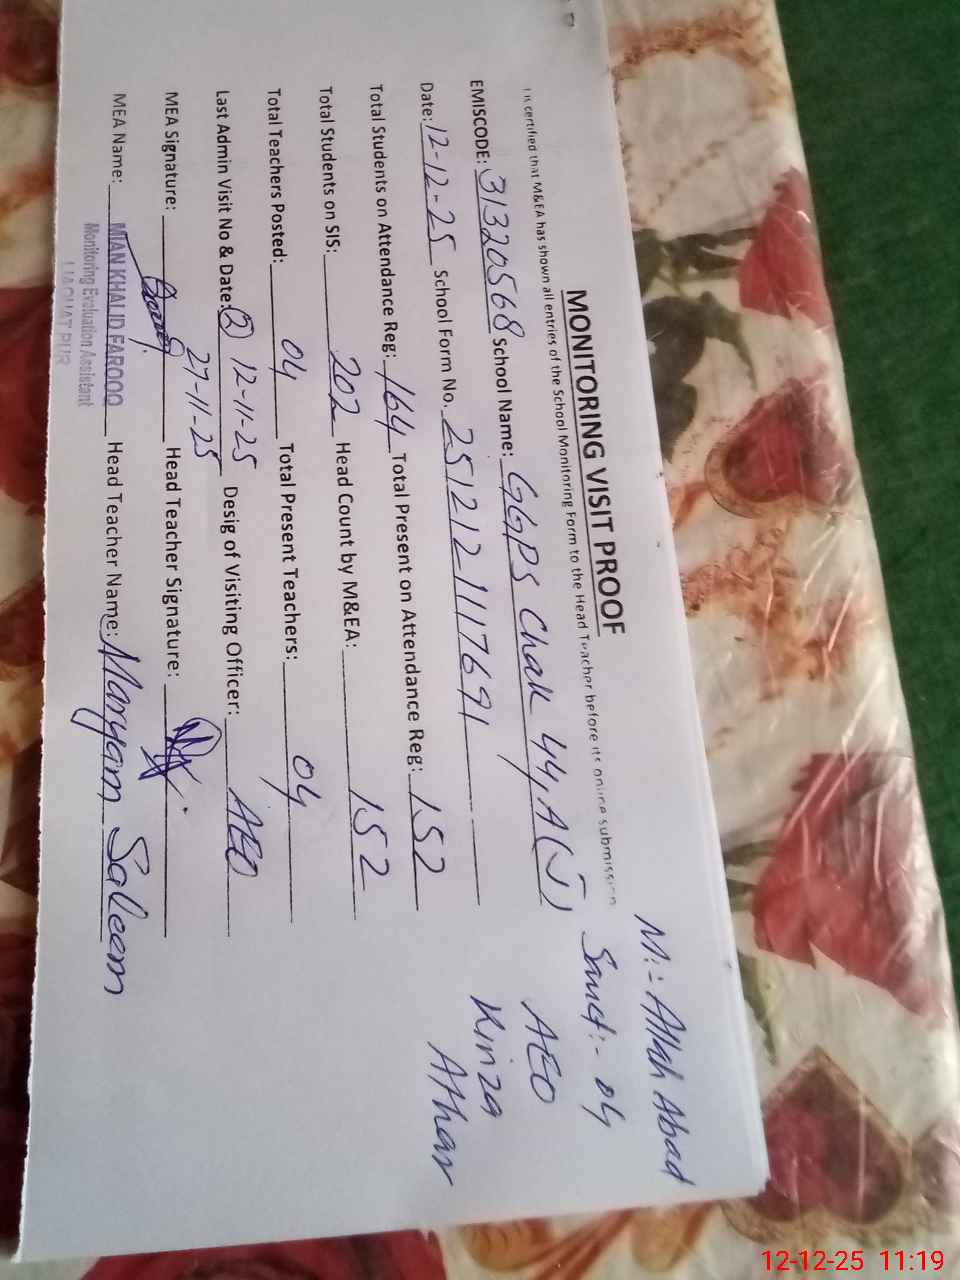 MONITORING VISIT PROOF
It is certified that M&EA has shown all entries of the School Monitoring Form to the Head Teacher before its online submission
EMISCODE: 31320568 School Name: GGPS Chak 44,A(J)
Date: 12-12-25 School Form No. 2512121117691
Total Students on Attendance Reg: 164 Total Present on Attendance Reg: 152
Total Students on SIS: 202 Head Count by M&EA: 152
Total Teachers Posted: 04 Total Present Teachers: 04
Last Admin Visit No & Date: (2) 12-11-25 Desig of Visiting Officer: AEO
27-11-25
MEA Signature: Head Teacher Signature:
MEA Name: MIAN KHALID FAROOQ Head Teacher Name: Maryam Saleem
Monitoring Evaluation Assistant
LIAQUAT PUR
M:- Allah Abad
Sanct:- 04
AEO
Kinza
Athar
12-12-25 11:19